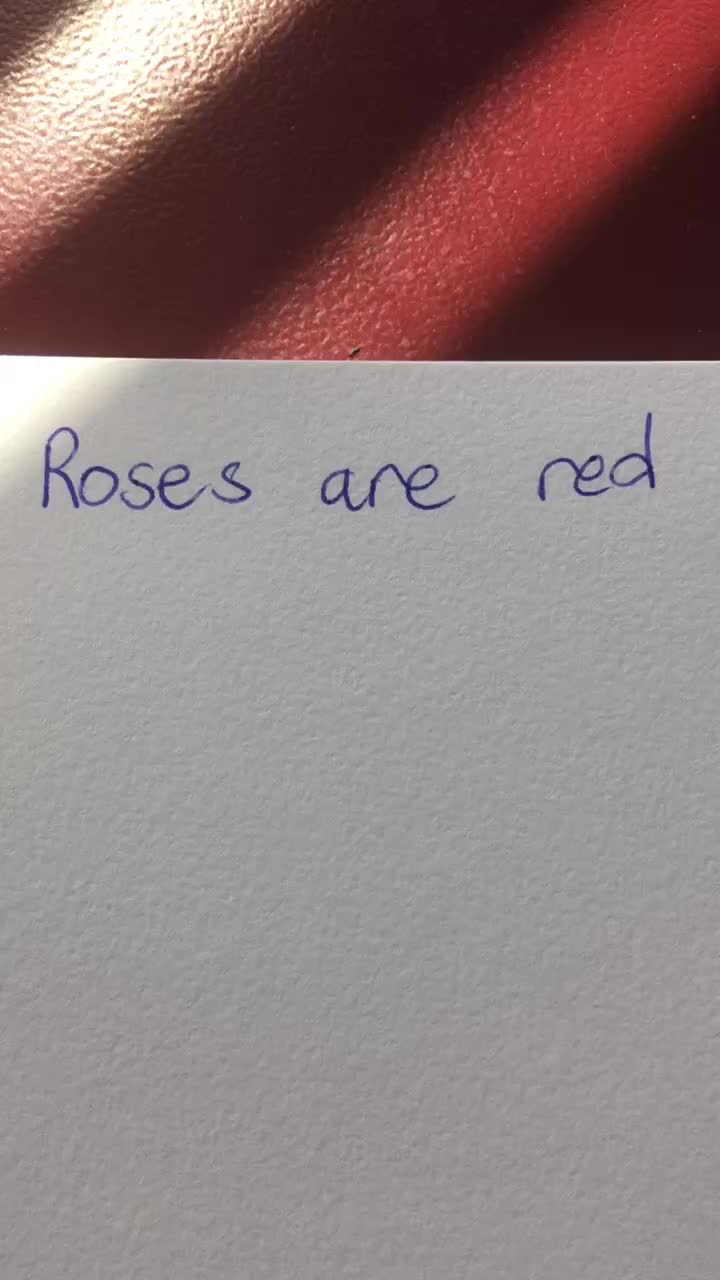 Roses are red